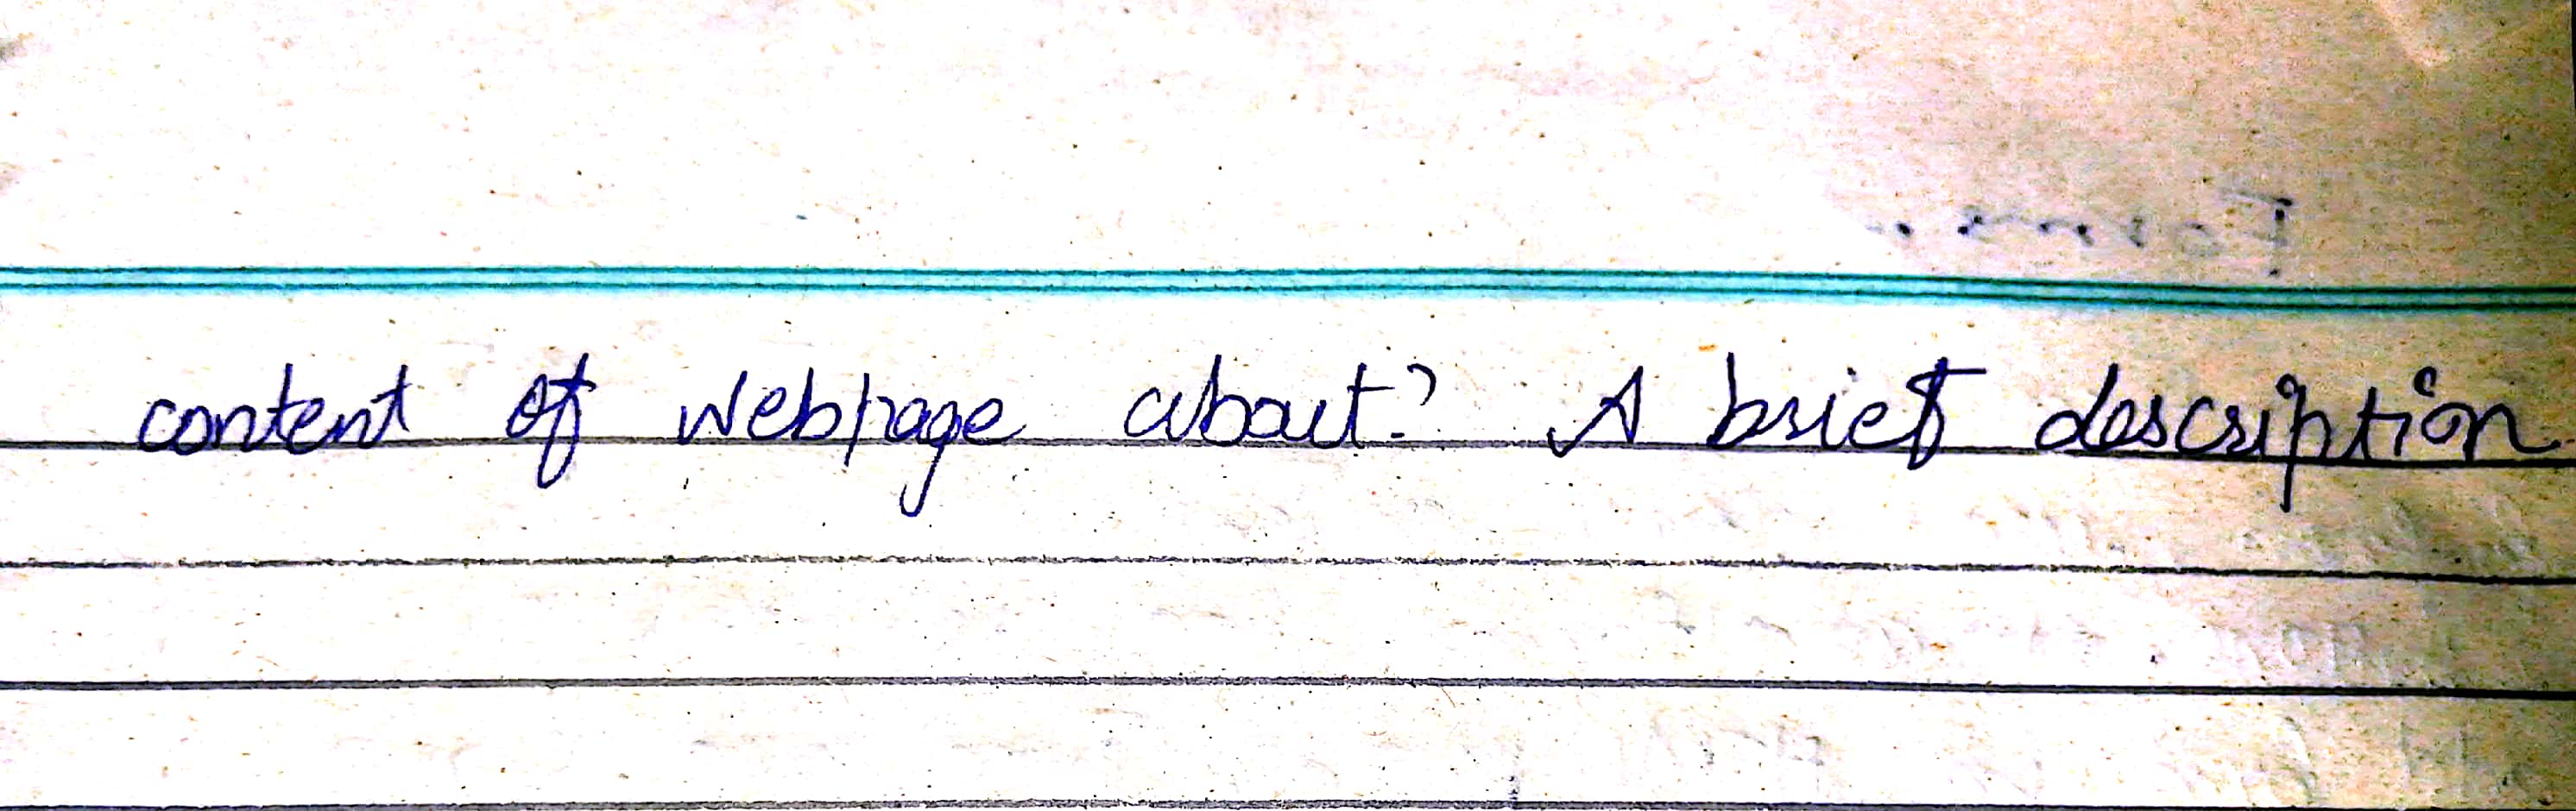 content of webpage about? A brief description